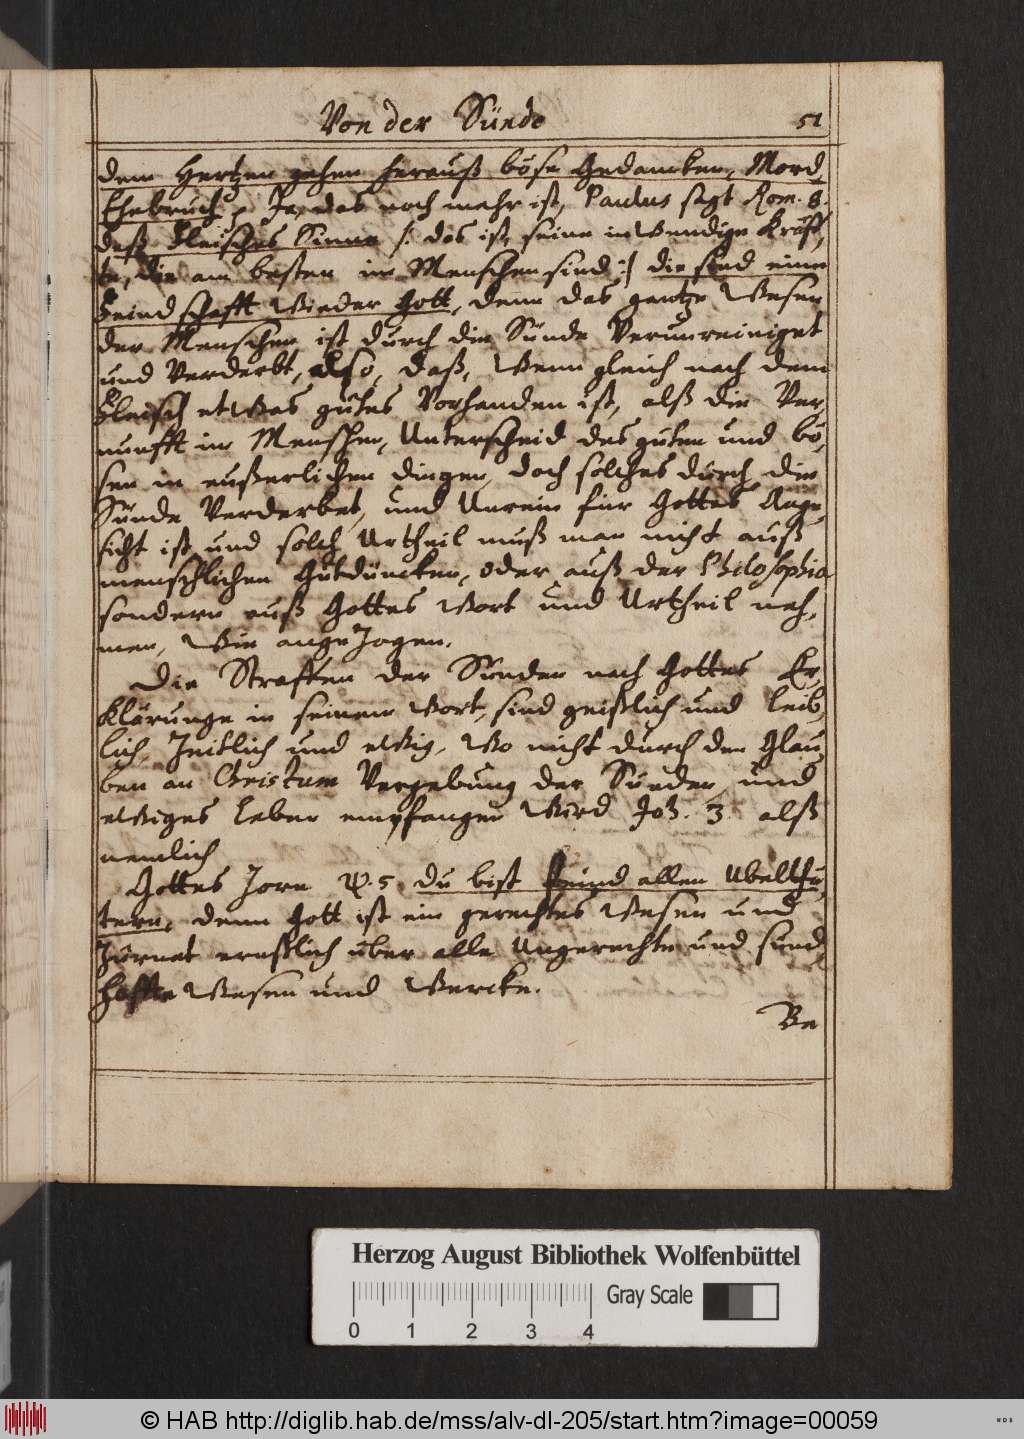 Von der Sünde 51
dem Hertzen gehen herauß böse Gedancken, Mord
Ehebruch p Ja, das noch mehr ist, Paulus sagt Rom. 8.
daß Fleisches Sinne /: das ist, seine inwendige Kräff,
te, die am besten im Menschen sind :/ die sind eine
Feindschafft wieder Gott, denn das gantze Wesen
der Menschen ist durch die Sünde Verunreiniget
und Verderbt, also, daß, wenn gleich nach dem
Fleisch etwas gutes Vorhanden ist, alß die Ver,
nunfft im Menschen, Unterscheid des guten und bö,
sen in eußerlichen dingen, doch solches durch die
Sünde Verderbet, und Unrein für Gottes Ange,
sicht ist, und solch Urtheil muß man nicht auß
menschlichen Gutdüncken, oder auß der Philosophia
sondern auß Gottes Wort und Urtheil neh,
men, Wie angezogen.
Die Straffen der Sünden nach Gottes Er,
klärunge in seinem Wort, sind geistlich und leib,
lich, Zeitlich und ewig, Wo nicht durch den Glau,
ben an Christum Vergebung der Sünden, und
ewiges Leben empfangen Wird Joh. 3. alß
nemlich
Gottes Zorn ψ. 5. du bist feind allen Ubelthä,
tern, denn Gott ist ein gerechtes Wesen und
Zürnet ernstlich über alle Ungerechte und sünd,
haffte Wesen und Wercke.
Be
Herzog August Bibliothek Wolfenbüttel
Gray Scale
0 1 2 3 4
© HAB http://diglib.hab.de/mss/alv-dl-205/start.htm?image=00059